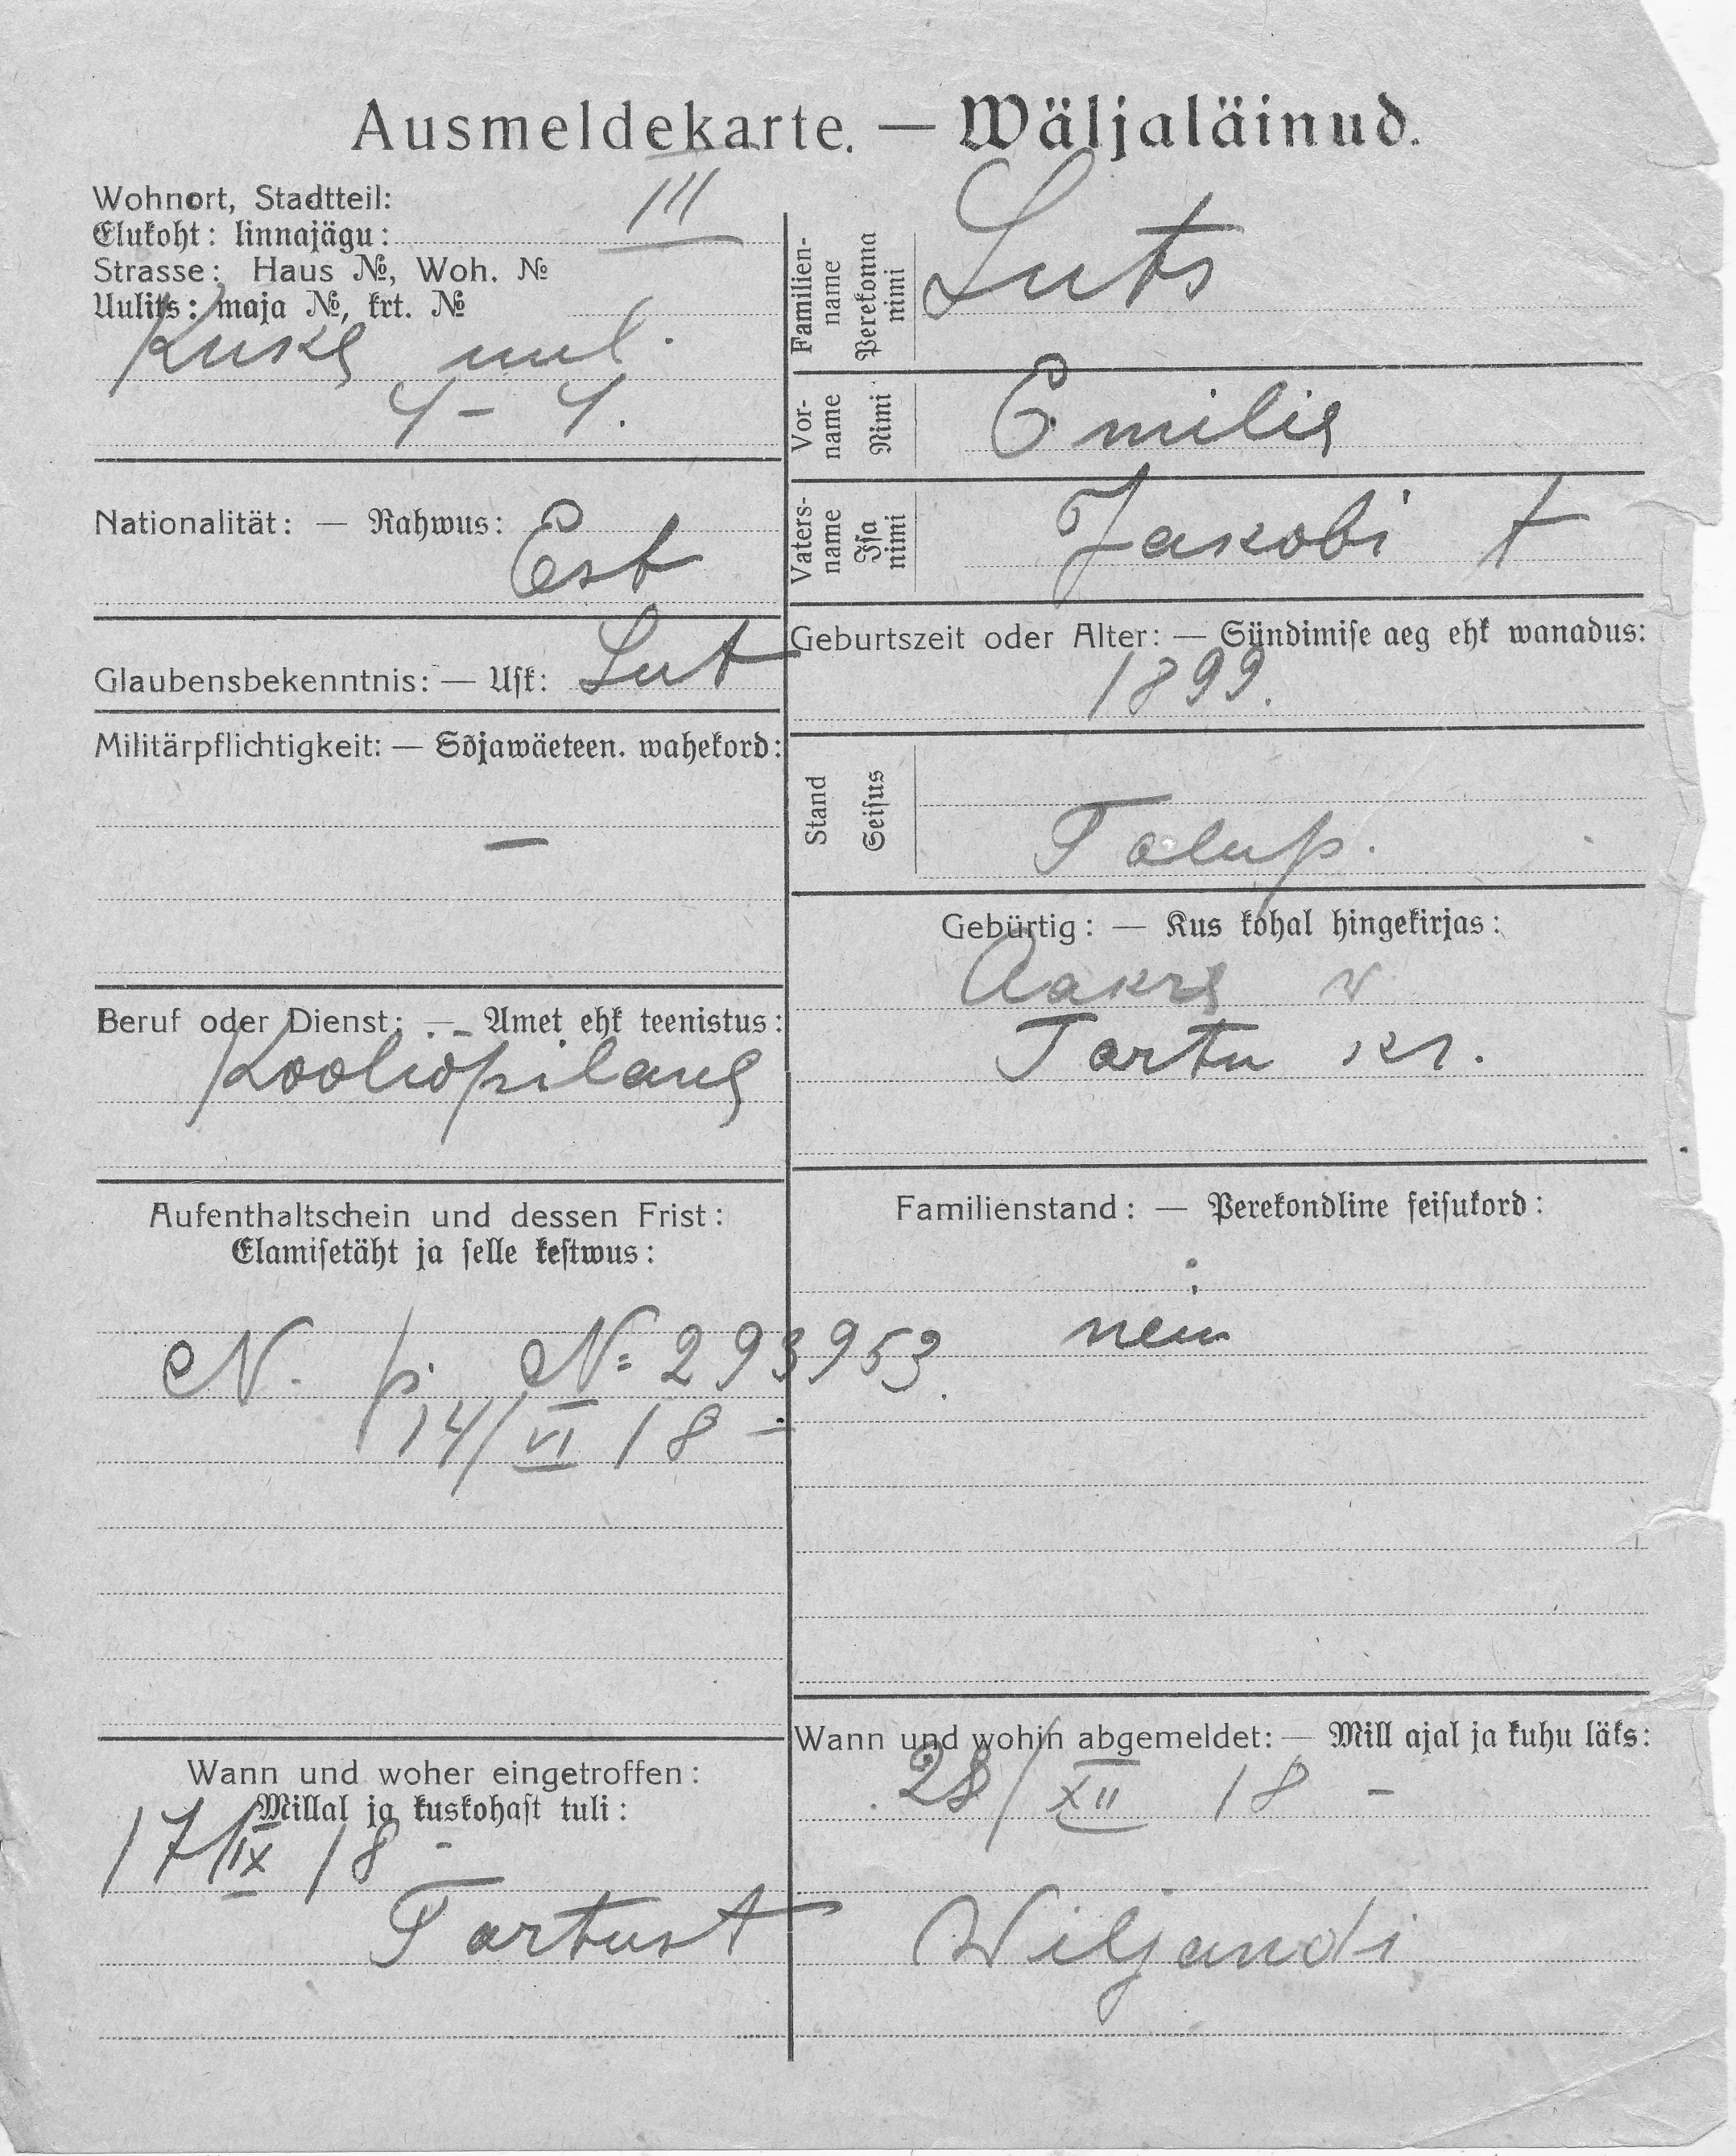 Ausmeldekarte. — Wäljaläinud.
Wohnort, Stadtteil:
Elukoht: linnajägu: III
Strasse: Haus №, Woh. №
Uulits: maja №, krt. №
Kuke uul.
4 – 4.
Nationalität: — Rahwus: Est
Glaubensbekenntnis: — Usk: Lut
Militärpflichtigkeit: — Sõjawäeteen. wahekord:
—
Beruf oder Dienst: — Amet ehk teenistus:
Kooliõpilane
Aufenthaltschein und dessen Frist:
Elamisetäht ja selle kestwus:
N. p. № 293953.
14/VI 18 –
Wann und woher eingetroffen:
Millal ja kuskohast tuli:
17/IX 18 –
Tartust
Familien-
name
Perekonna
nimi
Luts
Vor-
name
Nimi
Emilie
Vaters-
name
Isa
nimi
Jakobi t
Geburtszeit oder Alter: — Sündimise aeg ehk wanadus:
1899.
Stand
Seisus
Talup.
Gebürtig: — Kus kohal hingekirjas:
Aakre w
Tartu kr.
Familienstand: — Perekondline seisukord:
neiu
Wann und wohin abgemeldet: — Mill ajal ja kuhu läks:
28/XII 18 –
Wiljandi